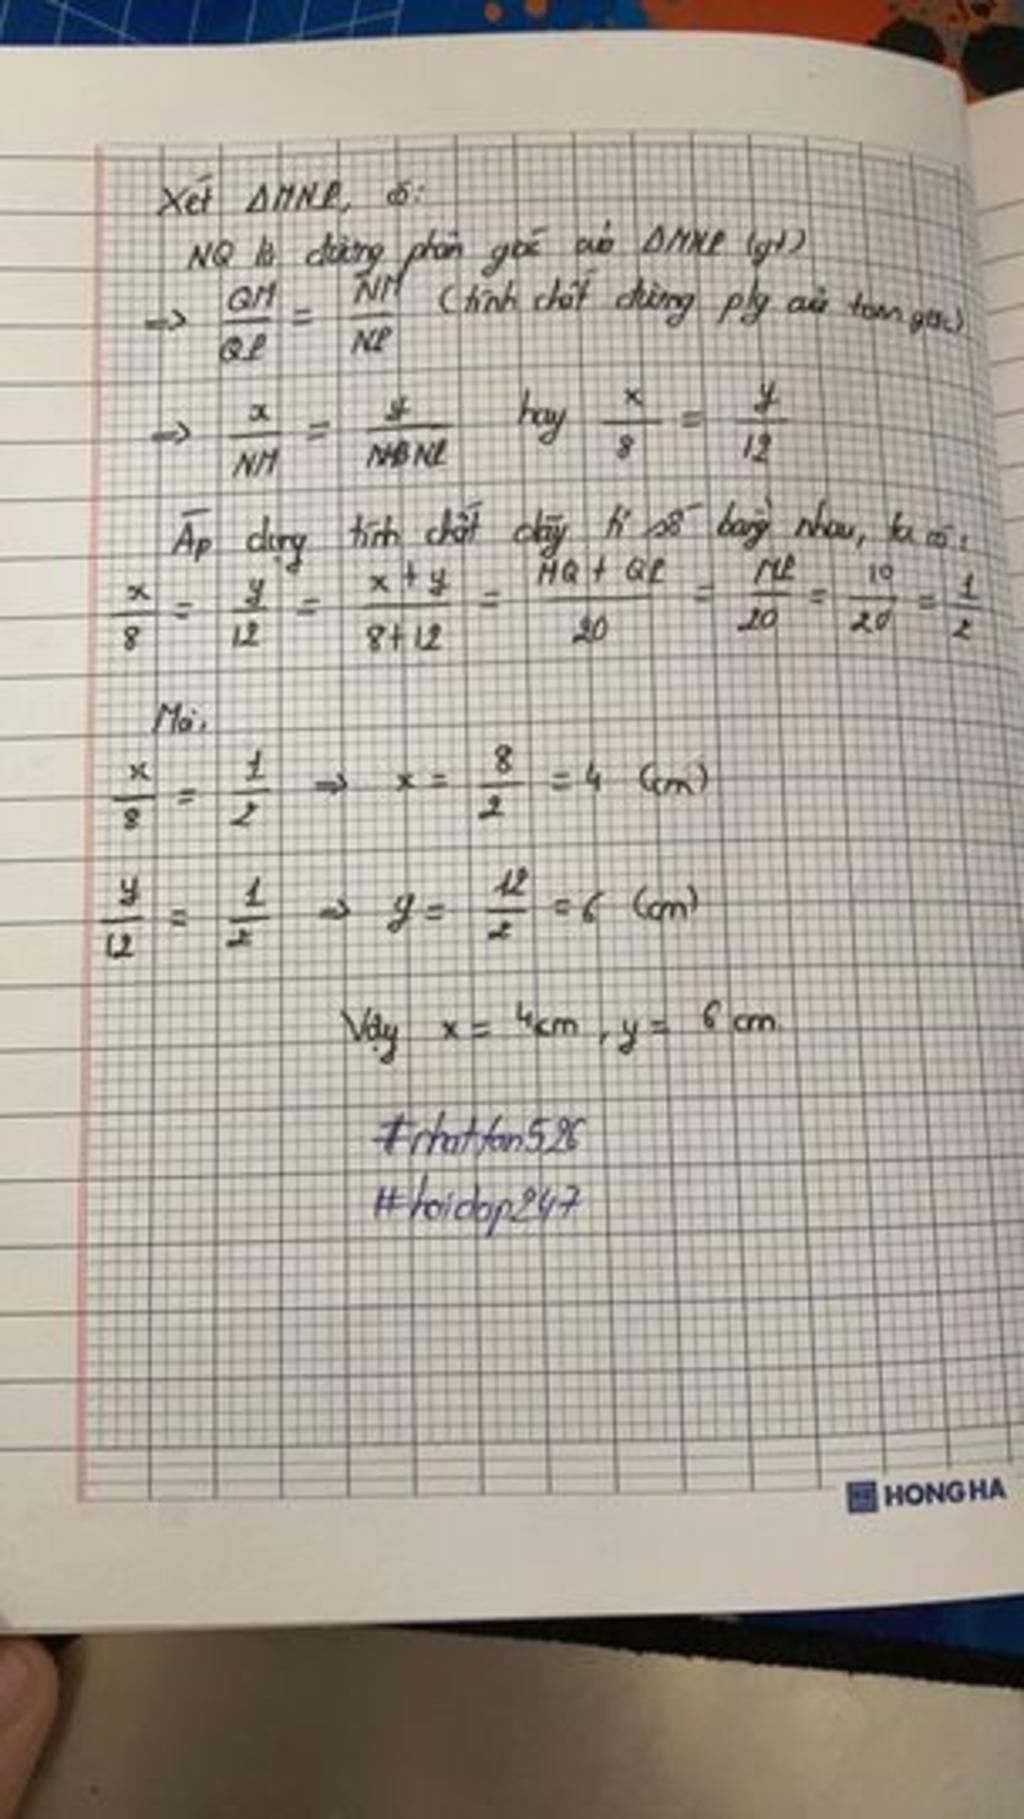 Xét ΔMNP, có:
NQ là đường phân giác của ΔMNP (gt)
=> QM/QP = NM/NP (tính chất đường p/g của tam giác)
=> x/NM = y/NP hay x/8 = y/12
Áp dụng tính chất dãy tỉ số bằng nhau, ta có:
x/8 = y/12 = x+y/8+12 = MQ+QP/20 = MP/20 = 10/20 = 1/2
Mà,
x/8 = 1/2 => x = 8/2 = 4 (cm)
y/12 = 1/2 => y = 12/2 = 6 (cm)
Vậy x = 4cm, y = 6cm.
#nhattan526
#hoidap247
HONG HA